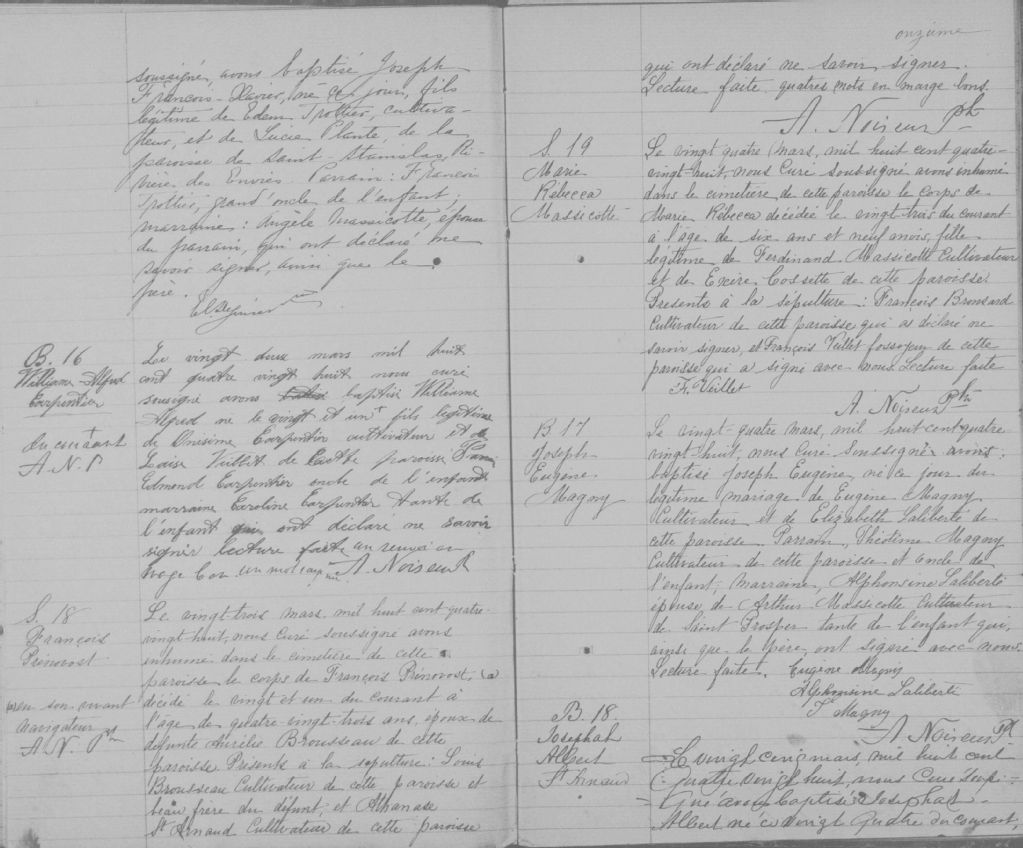 soussigné, avons baptisé Joseph
François-Xavier, né ce jour, fils
légitime de Edem Trottier, cultiva-
teur, et de Lucie Plante, de la
paroisse de Saint Stanislas, Ri-
vière des Envies. Parrain: François
Trottier, grand'oncle de l'enfant;
marraine: Angèle Massicotte, épouse
du parrain, qui ont déclaré ne
savoir signer, ainsi que le
père.
B. 16
William-Alfred
Carpentier
du courant
A. N. P
Le vingt deux mars mil huit
cent quatre vingt huit nous curé
sousigné avons baptisé William
Alfred né le vingt et un fils légitime
de Onesime Carpentier cultivateur et de
Louise Veillet de cette paroisse
Edmond Carpentier oncle de l'enfant
marraine Caroline Carpentier tante de
l'enfant qui ont déclaré ne savoir
signer lecture faite un renvoi en
marge bon un mot A. Noiseux P
S. 18
François
Prénovost
en son vivant
navigateur
A. N. Ptre
Le vingt-trois mars, mil huit cent quatre-
vingt huit, nous Curé soussigné avons
inhumé dans le cimetière de cette
paroisse le corps de François Prénovost,
décédé le vingt et un du courant à
l'âge de quatre-vingt-trois ans, époux de
défunte Aurélie Brousseau de cette
paroisse. Présents à la sépulture: Louis
Brousseau Cultivateur de cette paroisse et
beau frère du défunt, et Athanase
St Arnaud Cultivateur de cette paroisse
onzième
qui ont déclaré ne savoir signer.
Lecture faite quatres mots en marge bons.
A. Noiseux Ptr
S. 19
Marie
Rébecca
Massicotte
Le vingt quatre mars, mil huit cent quatre-
vingt-huit, nous Curé soussigné avons inhumé
dans le cimetière de cette paroisse le corps de
Marie Rébecca décédée le vingt-trois du courant
à l'âge de six ans et neuf mois, fille
légitime de Ferdinand Massicotte Cultivateur
et de Exire Cossette de cette paroisse.
Présents à la sépulture: François Bronsard
Cultivateur de cette paroisse qui a déclaré ne
savoir signer, et François Veillet fossoyeur de cette
paroisse qui a signé avec nous. Lecture faite
F. Veillet
A. Noiseux Ptr
B 17
Joseph
Eugène
Magny
Le vingt-quatre mars, mil huit cent quatre-
vingt-huit, nous Curé Soussigné avons
baptisé Joseph Eugène, né ce jour du
légitime mariage de Eugène Magny
Cultivateur et de Elizabeth Laliberté de
cette paroisse. Parrain, Théotime Magny
Cultivateur de cette paroisse et oncle de
l'enfant; marraine, Alphonsine Laliberté
épouse de Arthur Massicotte Cultivateur
de Saint Prosper tante de l'enfant qui,
ainsi que le père, ont signé avec nous.
Lecture faite. Eugène Magny
Alphonsine Laliberté
T. Magny
A Noiseux Pt
B. 18.
Josephat
Albert
St Arnaud
Le vingt cinq mars, mil huit cent
quatre vingt huit, nous Curé sousi-
gné avons baptisé Josephat
Albert né le vingt quatre du courant,